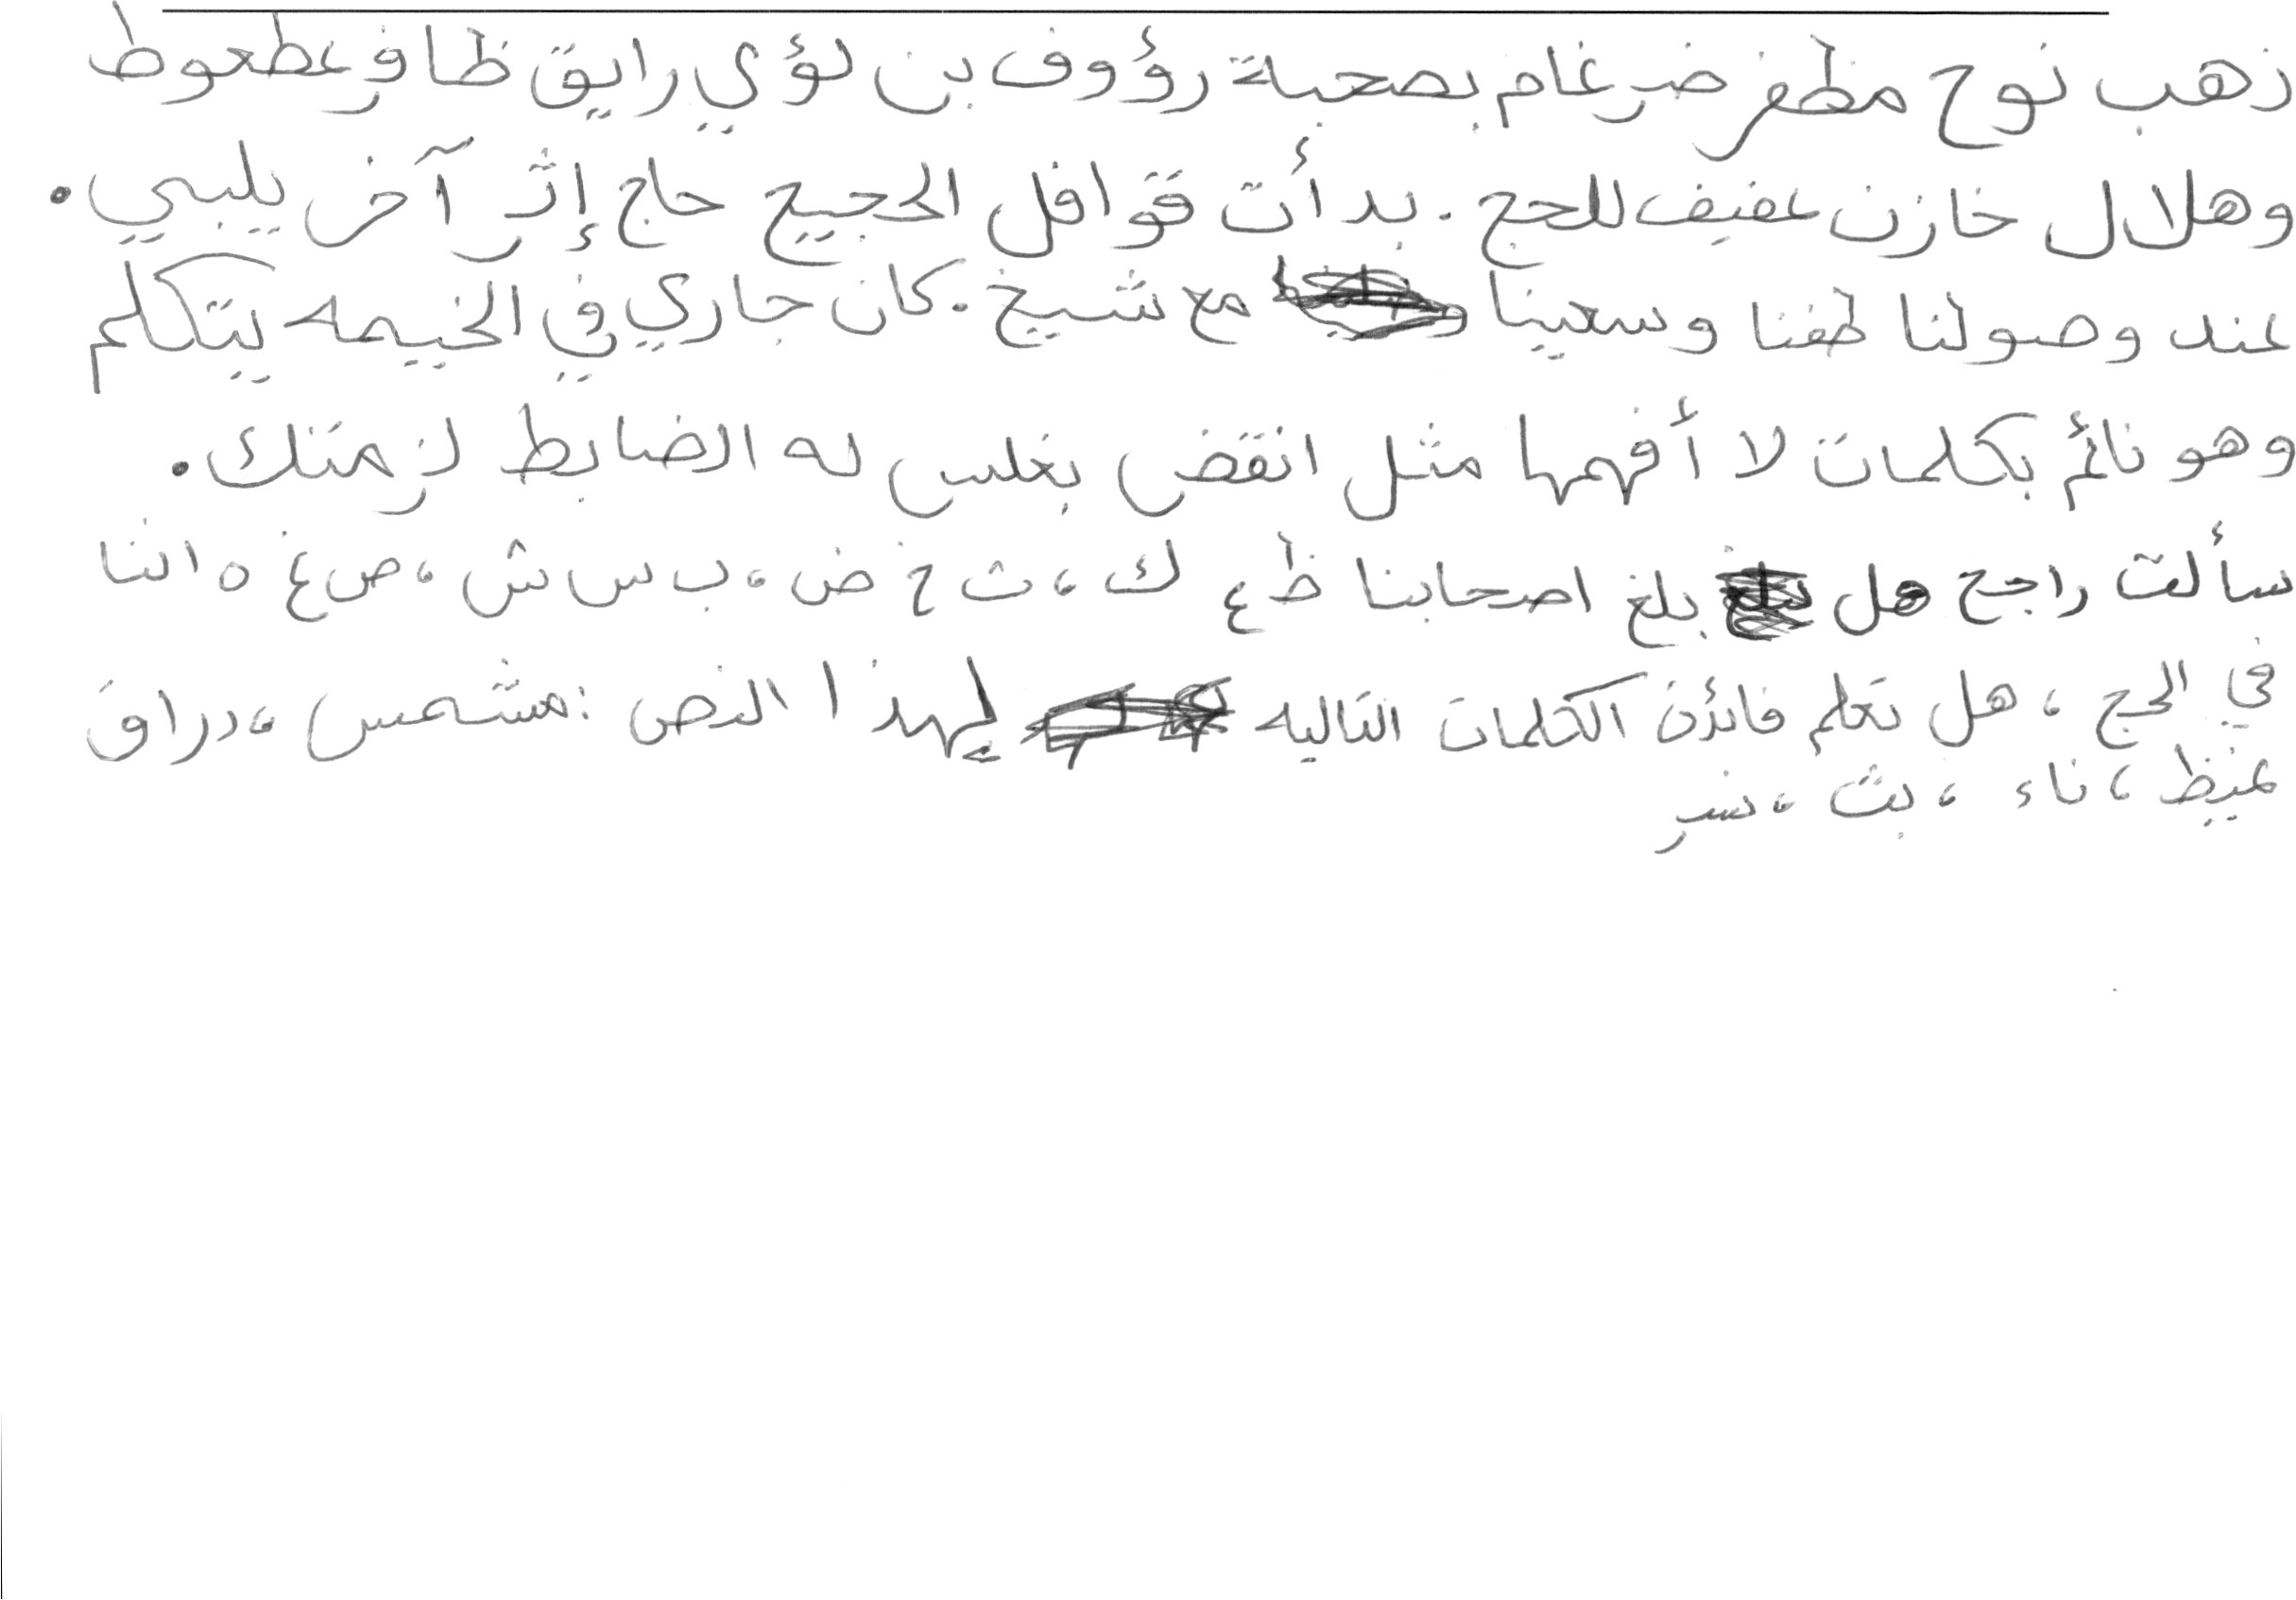 ذهب نوح مظفر ضرغام بصحبة رؤوف بن لؤي رايق ظافر عطعوط
وهلال خازن عفيف للحج . بدأت قوافل الحجيج حاج إثر آخر يلبي .
عند وصولنا طفنا وسعينا مع شيخ . كان جاري في الخيمه يتكلم
وهو نائم بكلمات لا أفهمها مثل انقض بغلس له الضابط لزمتك .
سألت راجح هل بلغ اصحابنا ظ ع ك ، ث خ ض ، ب س ش ، ص غ ه اننا
في الحج ، هل تعلم فائدة الكلمات التاليه لهذا النص : مشمس ، دراق
غيظ ، ناء ، بث ، نسر